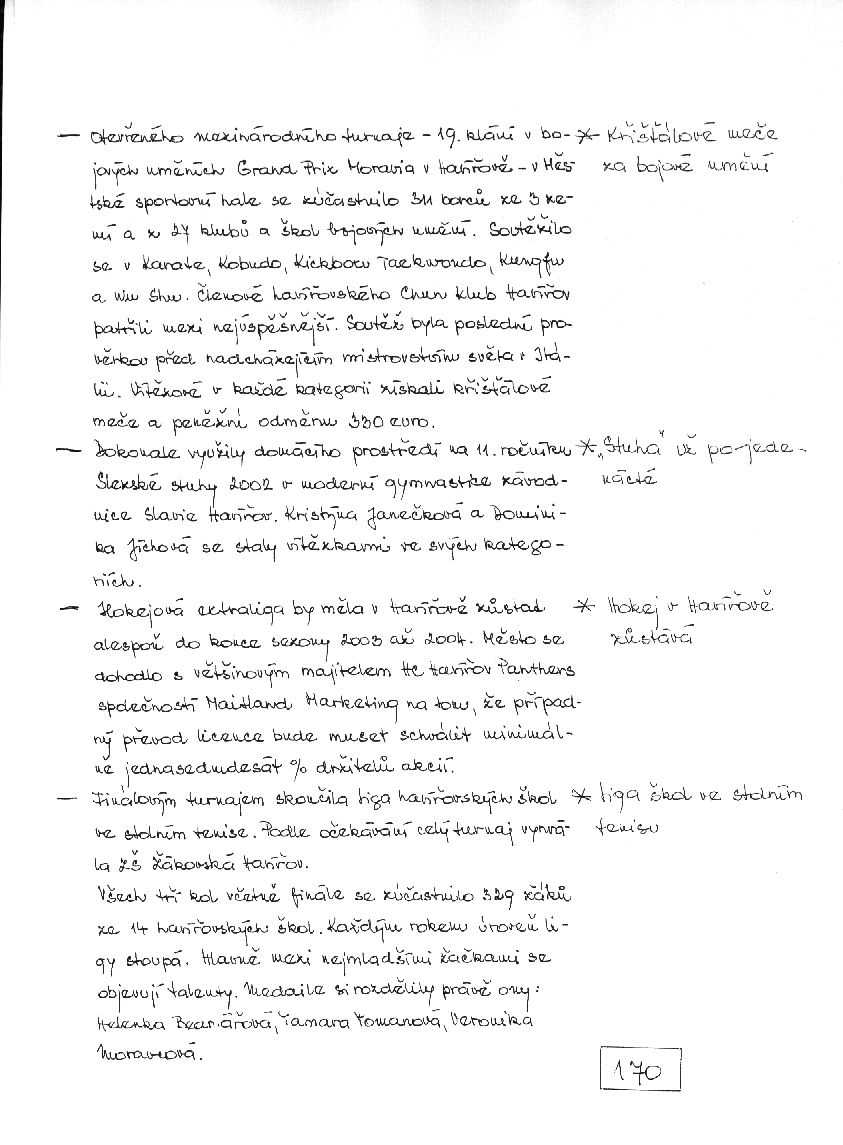 — Otevřeného mezinárodního turnaje - 19. klání v bo- * Křišťálové meče
jových uměních Grand Prix Moravia v Havířově - v Měs- za bojové umění
tské sportovní hale se zúčastnilo 311 borců ze 3 ze-
mí a z 27 klubů a škol bojových umění. Soutěžilo
se v Karate, Kobudo, Kickboxu Taekwondo, Kungfu
a Wu Shu. Členové havířovského Chun klub Havířov
patřili mezi nejúspěšnější. Soutěž byla poslední pro-
věrkou před nadcházejícím mistrovstvím světa v Itá-
lii. Vítězové v každé kategorii získali křišťálové
meče a peněžní odměnu 330 euro.
— Dokonale využily domácího prostředí na 11. ročníku * „Stuha" už po-jede-
Slezské stuhy 2002 v moderní gymnastice závod- nácté
nice Slavie Havířov. Kristýna Janečková a Domini-
ka Jíchová se staly vítězkami ve svých katego-
riích.
— Hokejová extraliga by měla v Havířově zůstat * Hokej v Havířově
alespoň do konce sezony 2003 až 2004. Město se zůstává
dohodlo s většinovým majitelem HC Havířov Panthers
společností Maitland Marketing na tom, že případ-
ný převod licence bude muset schválit minimál-
ně jednasedmdesát % držitelů akcií.
— Finálovým turnajem skončila liga havířovských škol * liga škol ve stolním
ve stolním tenise. Podle očekávání celý turnaj vyhrá- tenisu
la ZŠ Žákovská Havířov.
Všech tří kol včetně finále se zúčastnilo 329 žáků
ze 14 havířovských škol. Každým rokem úroveň li-
gy stoupá. Hlavně mezi nejmladšími žačkami se
objevují talenty. Medaile si rozdělily právě ony:
Helenka , Tamara Tomanová, Veronika
Moravcová.
170